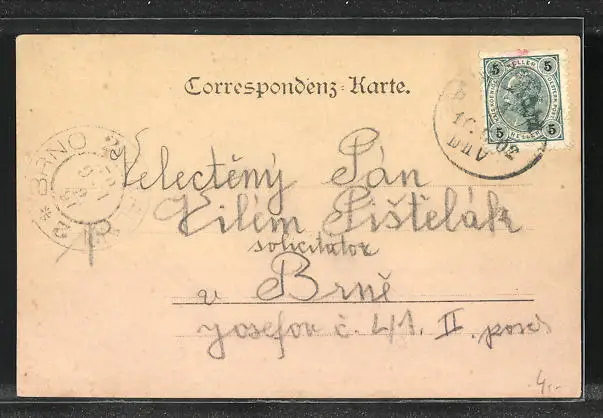 Correspondenz-Karte.
5 HELLER 5
5 HELLER 5
BRNO
Velectěný Pán
Vilém Pištělák
solicitator
v Brně
Josefov č. 41. II. posch
4,-